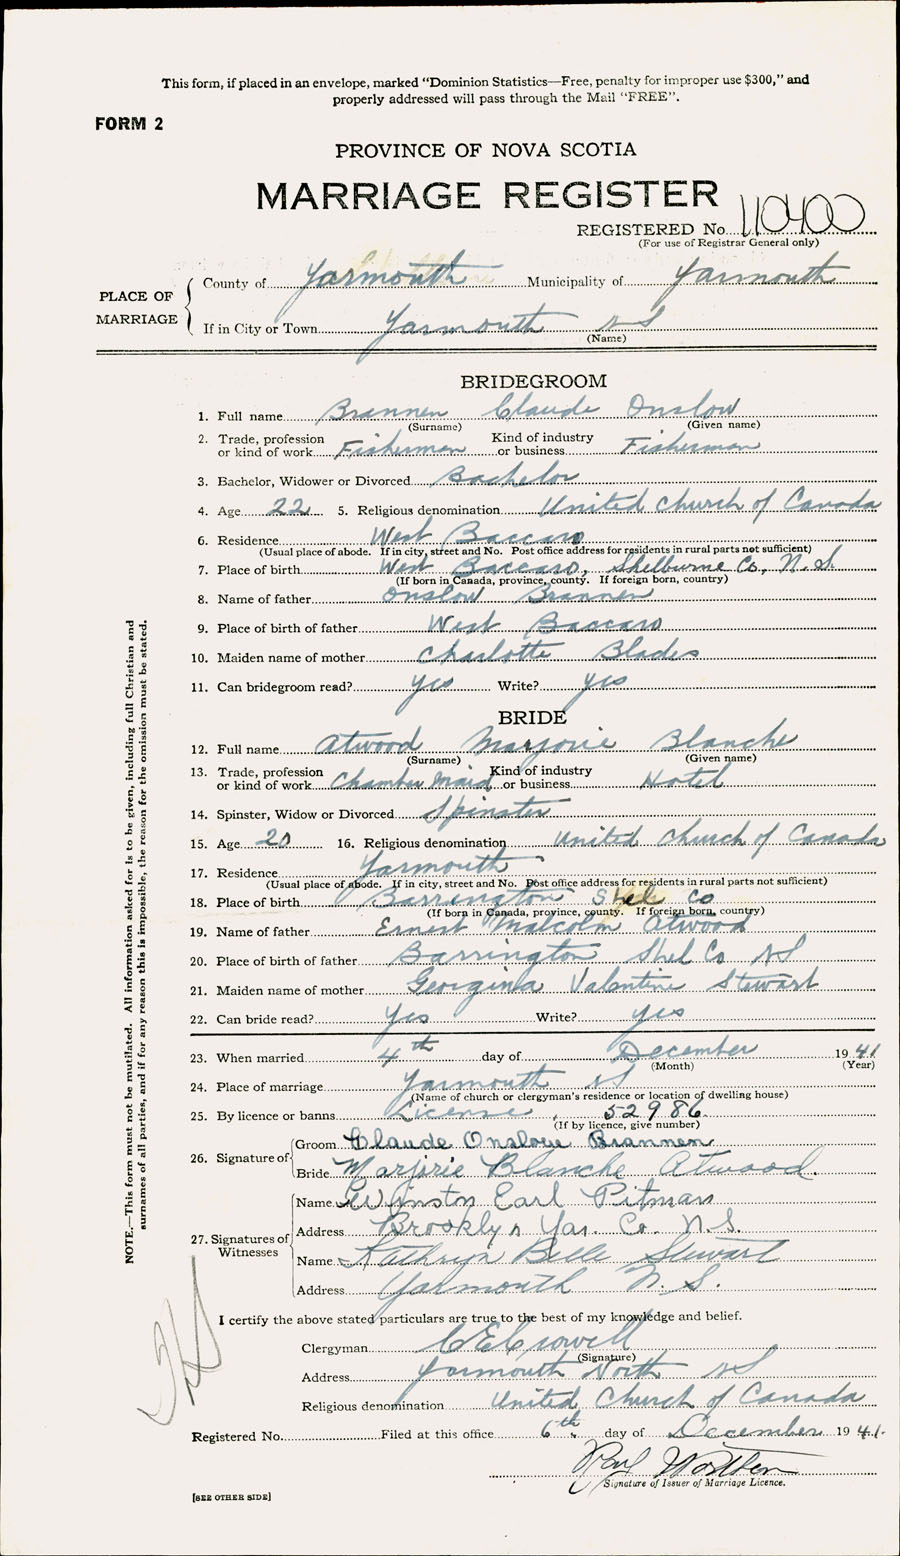 This form, if placed in an envelope, marked "Dominion Statistics—Free, penalty for improper use $300," and
properly addressed will pass through the Mail "FREE".
FORM 2
PROVINCE OF NOVA SCOTIA
MARRIAGE REGISTER
REGISTERED No. 110400
(For use of Registrar General only)
PLACE OF MARRIAGE
County of Yarmouth Municipality of Yarmouth
If in City or Town Yarmouth N S
(Name)
BRIDEGROOM
1. Full name Brannen Claude Onslow
(Surname) (Given name)
2. Trade, profession or kind of work Fisherman Kind of industry or business Fisherman
3. Bachelor, Widower or Divorced Bachelor
4. Age 22 5. Religious denomination United Church of Canada
6. Residence West Baccaro
(Usual place of abode. If in city, street and No. Post office address for residents in rural parts not sufficient)
7. Place of birth West Baccaro, Shelburne Co, N. S.
(If born in Canada, province, county. If foreign born, country)
8. Name of father Onslow Brannen
9. Place of birth of father West Baccaro
10. Maiden name of mother Charlotte Blades
11. Can bridegroom read? yes Write? yes
BRIDE
12. Full name Atwood Marjorie Blanche
(Surname) (Given name)
13. Trade, profession or kind of work Chamber Maid Kind of industry or business Hotel
14. Spinster, Widow or Divorced Spinster
15. Age 20 16. Religious denomination United Church of Canada
17. Residence Yarmouth
(Usual place of abode. If in city, street and No. Post office address for residents in rural parts not sufficient)
18. Place of birth Barrington Shel Co
(If born in Canada, province, county. If foreign born, country)
19. Name of father Ernest Malcolm Atwood
20. Place of birth of father Barrington Shel Co N S
21. Maiden name of mother Georgina Valentine Stewart
22. Can bride read? Yes Write? yes
23. When married 4th day of December 1941
(Month) (Year)
24. Place of marriage Yarmouth N S
(Name of church or clergyman's residence or location of dwelling house)
25. By licence or banns License, 52986
(If by licence, give number)
26. Signature of Groom Claude Onslow Brannen
Bride Marjorie Blanche Atwood.
27. Signatures of Witnesses
Name Winston Earl Pitman
Address Brooklyn Yar. Co. N.S.
Name Kathryn Belle Stewart
Address Yarmouth N. S.
I certify the above stated particulars are true to the best of my knowledge and belief.
Clergyman C E Crowell
(Signature)
Address Yarmouth North N S
Religious denomination United Church of Canada
Registered No. Filed at this office 6th day of December 1941.
Signature of Issuer of Marriage Licence.
[SEE OTHER SIDE]
NOTE.—This form must not be mutilated. All information asked for is to be given, including full Christian and
surnames of all parties, and if for any reason this is impossible, the reason for the omission must be stated.